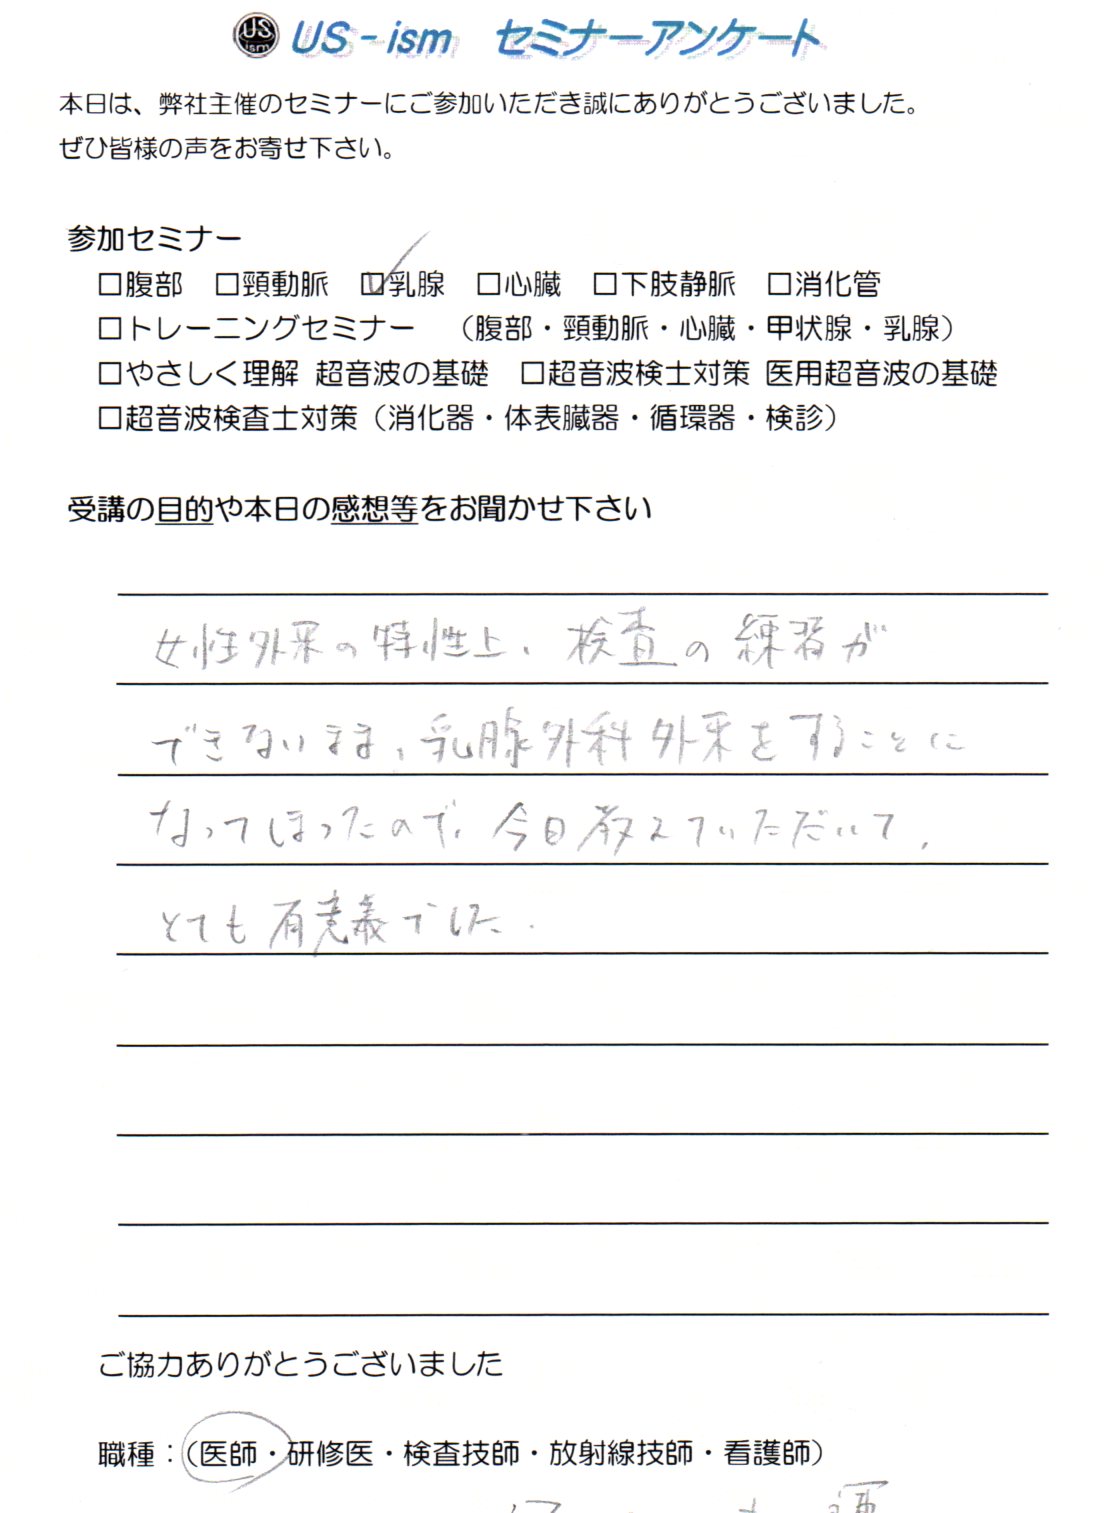 US ism US-ism セミナーアンケート
本日は、弊社主催のセミナーにご参加いただき誠にありがとうございました。
ぜひ皆様の声をお寄せ下さい。
参加セミナー
□腹部 □頸動脈 ☑乳腺 □心臓 □下肢静脈 □消化管
□トレーニングセミナー （腹部・頸動脈・心臓・甲状腺・乳腺）
□やさしく理解 超音波の基礎 □超音波検士対策 医用超音波の基礎
□超音波検査士対策（消化器・体表臓器・循環器・検診）
受講の目的や本日の感想等をお聞かせ下さい
女性外来の特性上、検査の練習が
できないまま、乳腺外科外来をすることに
なってしまったので、今日教えていただいて、
とても有意義でした.
ご協力ありがとうございました
職種：（医師・研修医・検査技師・放射線技師・看護師）